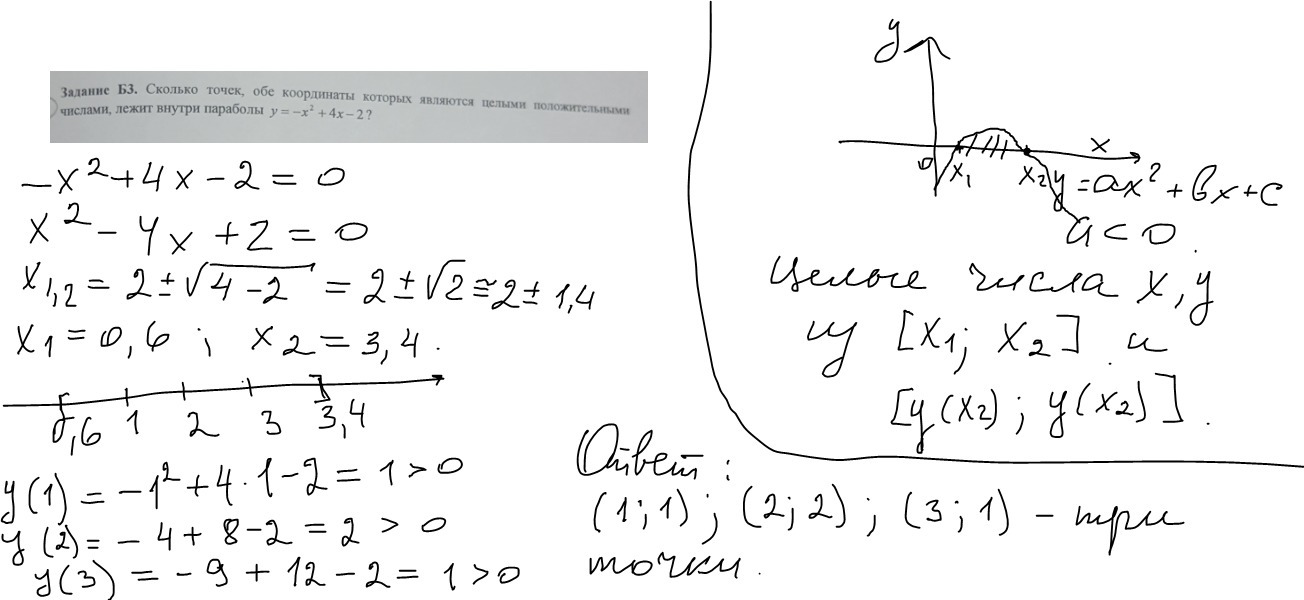 Задание Б3. Сколько точек, обе координаты которых являются целыми положительными
числами, лежит внутри параболы y = −x² + 4x − 2?
−x² + 4x − 2 = 0
x² − 4x + 2 = 0
x₁,₂ = 2 ± √(4 − 2) = 2 ± √2 ≅ 2 ± 1,4
x₁ = 0,6 ; x₂ = 3,4.
0,6 1 2 3 3,4
y(1) = −1² + 4·1 − 2 = 1 > 0
y(2) = −4 + 8 − 2 = 2 > 0
y(3) = −9 + 12 − 2 = 1 > 0
y
x
0 x₁ x₂ y = ax² + bx + c
a < 0.
Целые числа x, y
из [x₁; x₂] и
[y(x₂); y(x₂)].
Ответ:
(1;1); (2;2); (3;1) – три
точки.